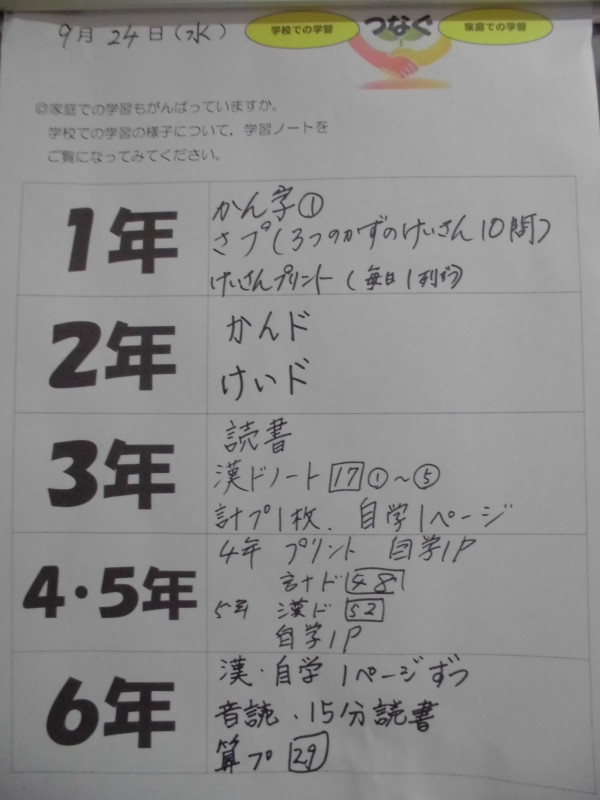 9月 24日(水)
学校での学習
つなぐ
家庭での学習
◎家庭での学習もがんばっていますか。
学校での学習の様子について、学習ノートを
ご覧になってみてください。
1年
かん字①
さプ(3つのかずのけいさん10問)
けいさんプリント(毎日1列ずつ)
2年
かんド
けいド
3年
読書
漢ドノート 17 ①〜⑤
計プ1枚、自学1ページ
4・5年
4年 プリント 自学1P
計ド 48
5年 漢ド 52
自学1P
6年
漢・自学 1ページずつ
音読・15分読書
算プ 29